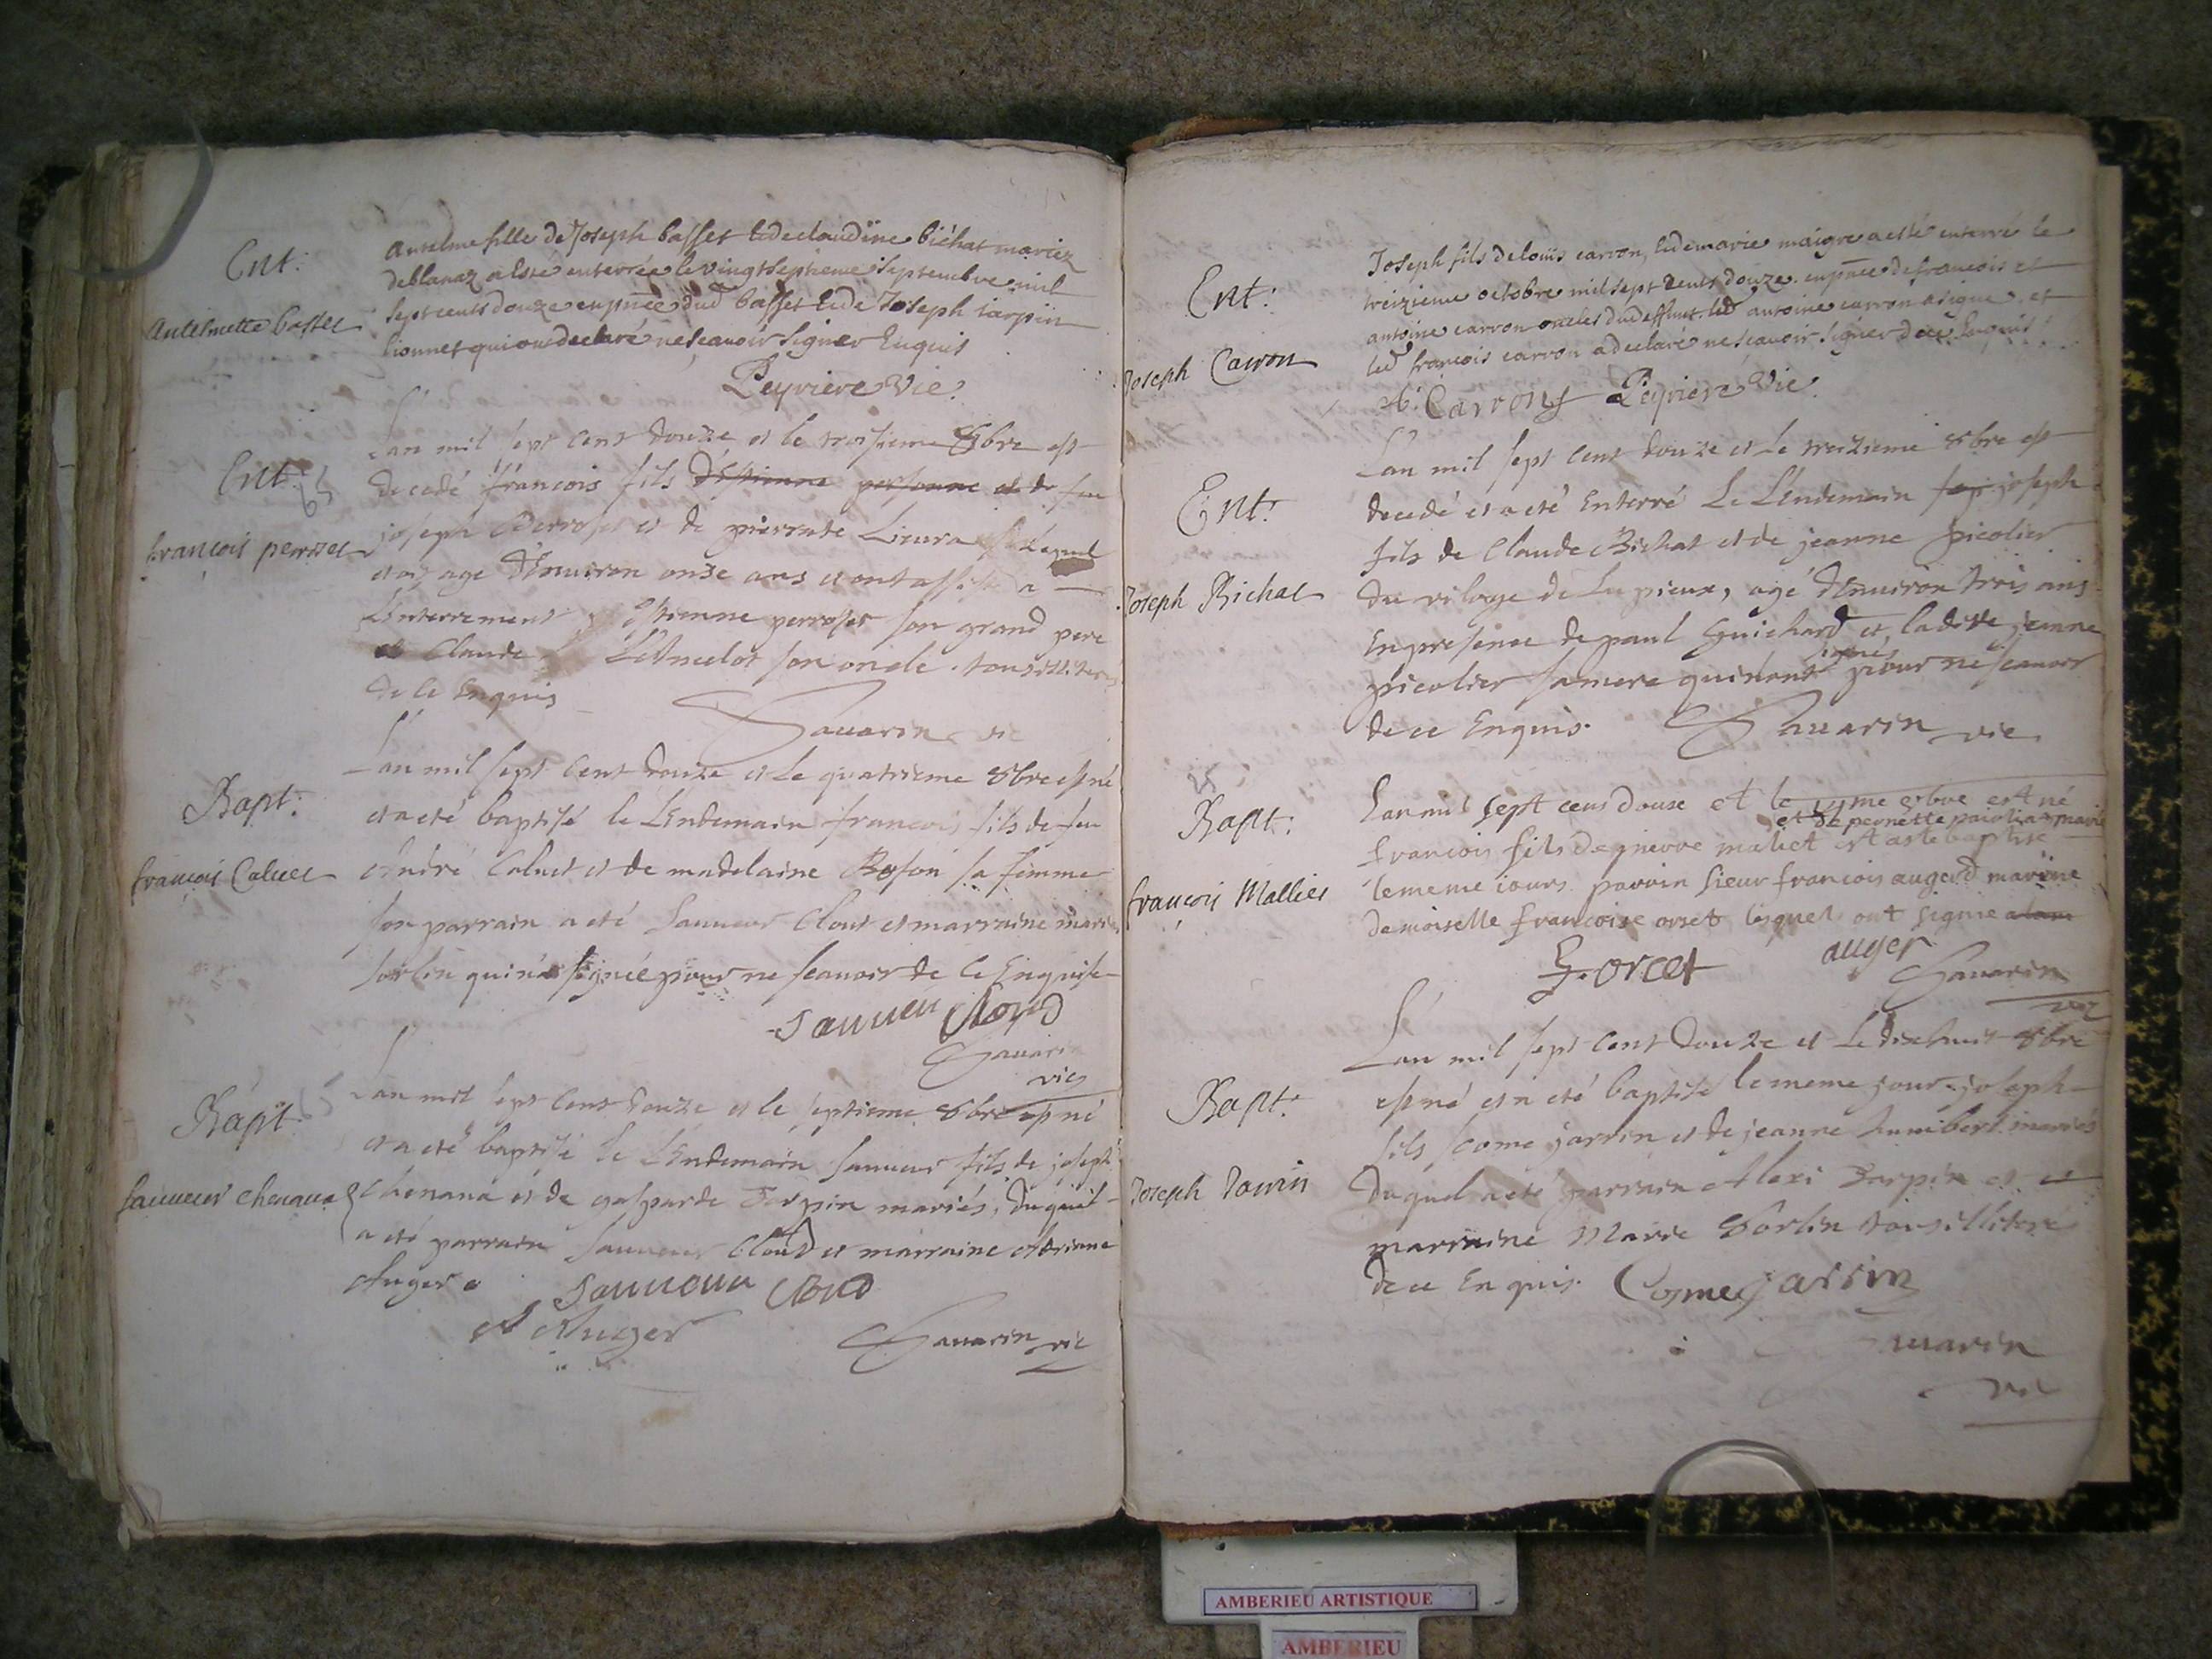 Ent:
Antelmette basset
Antelme fille de Joseph basset et de claudine bichat mariez
de blanaz a esté enterrée le vingt septieme septembre mil
sept cents douze en pnce dud basset et de Joseph tarpin
lionnet qui ont declaré ne scavoir signer Enquis
Peyriere Vic.
Ent:
françois perroset
L'an mil sept cent douze et le troisieme 8bre est
decedé francois fils d'Estienne personne et de feu
joseph Perroset et de pierrette
agé d'Environ onze ans et ont assisté a
L'enterrement Estienne perroset son grand pere
et Claude L'Ancelot son oncle. tous illiterés
de ce Enquis
Savarin vic
Bapt:
françois Caluet
L'an mil sept cent douze et le quatrieme 8bre est né
et a eté baptisé le Lendemain francois fils de feu
André Caluet et de madelaine Boson sa femme
son parrain a eté Sauueur Clout et marraine marie
sorlin qui n'a signée pour ne scauoir de ce Enquise
Sauueu Cloud
Savarin
vic
Bapt
Sauueur Chenaua
L'an mil sept cent douze et le septieme 8bre est né
et a eté baptisé le Lendemain Sauueur fils de joseph
Chenaua et de gasparde Tarpin mariés, duquel
a eté parrain Sauueur Cloud et marraine Adriane
Auger
Sauueur Cloud
A Auger
Savarin vic
Ent:
Joseph Carron
Joseph fils de loüis carron, et de marie maigre a esté enterré le
treizieme octobre mil sept cents douze. en pnce de francois et
antoine carron oncles du deffunt. led antoine carron a signe. et
led françois carron a declaré ne scavoir signer de ce Enquis
A: Carron Peyriere Vic.
Ent:
Joseph Bichat
L'an mil sept cent douze et Le treizieme 8bre est
decedé et a eté Enterré Le Lendemain joseph
fils de Claude Bichat et de jeanne picolier
du vilage de Lupieux, agé d'Environ trois ans
En presence de paul Guichard et ladette jeanne
picolier sa mere qui n'ont signés pour ne scauoir
de ce Enquis. Savarin vic
Bapt:
françois Mallier
Lan mil sept cens douse et le me 8bre est né
et de pernette mariés
francois fils de pierre maliet et a ste baptise
le meme iours parain sieur francois auger marine
demoiselle francoise orset lesquels ont signie
F. orcet
auger
Savarin
vic
Bapt:
Joseph Jarrin
L'an mil sept cent douze et Le dixhuit 8bre
est né et a eté baptisé le meme jour joseph
fils Come jarrin et de jeanne humbert mariés
duquel a eté parrain Alexi tarpin et
marraine Marie Sorlin tous illiteré
de ce Enquis. Come Jarrin
Savarin
vic
AMBERIEU ARTISTIQUE
AMBERIEU